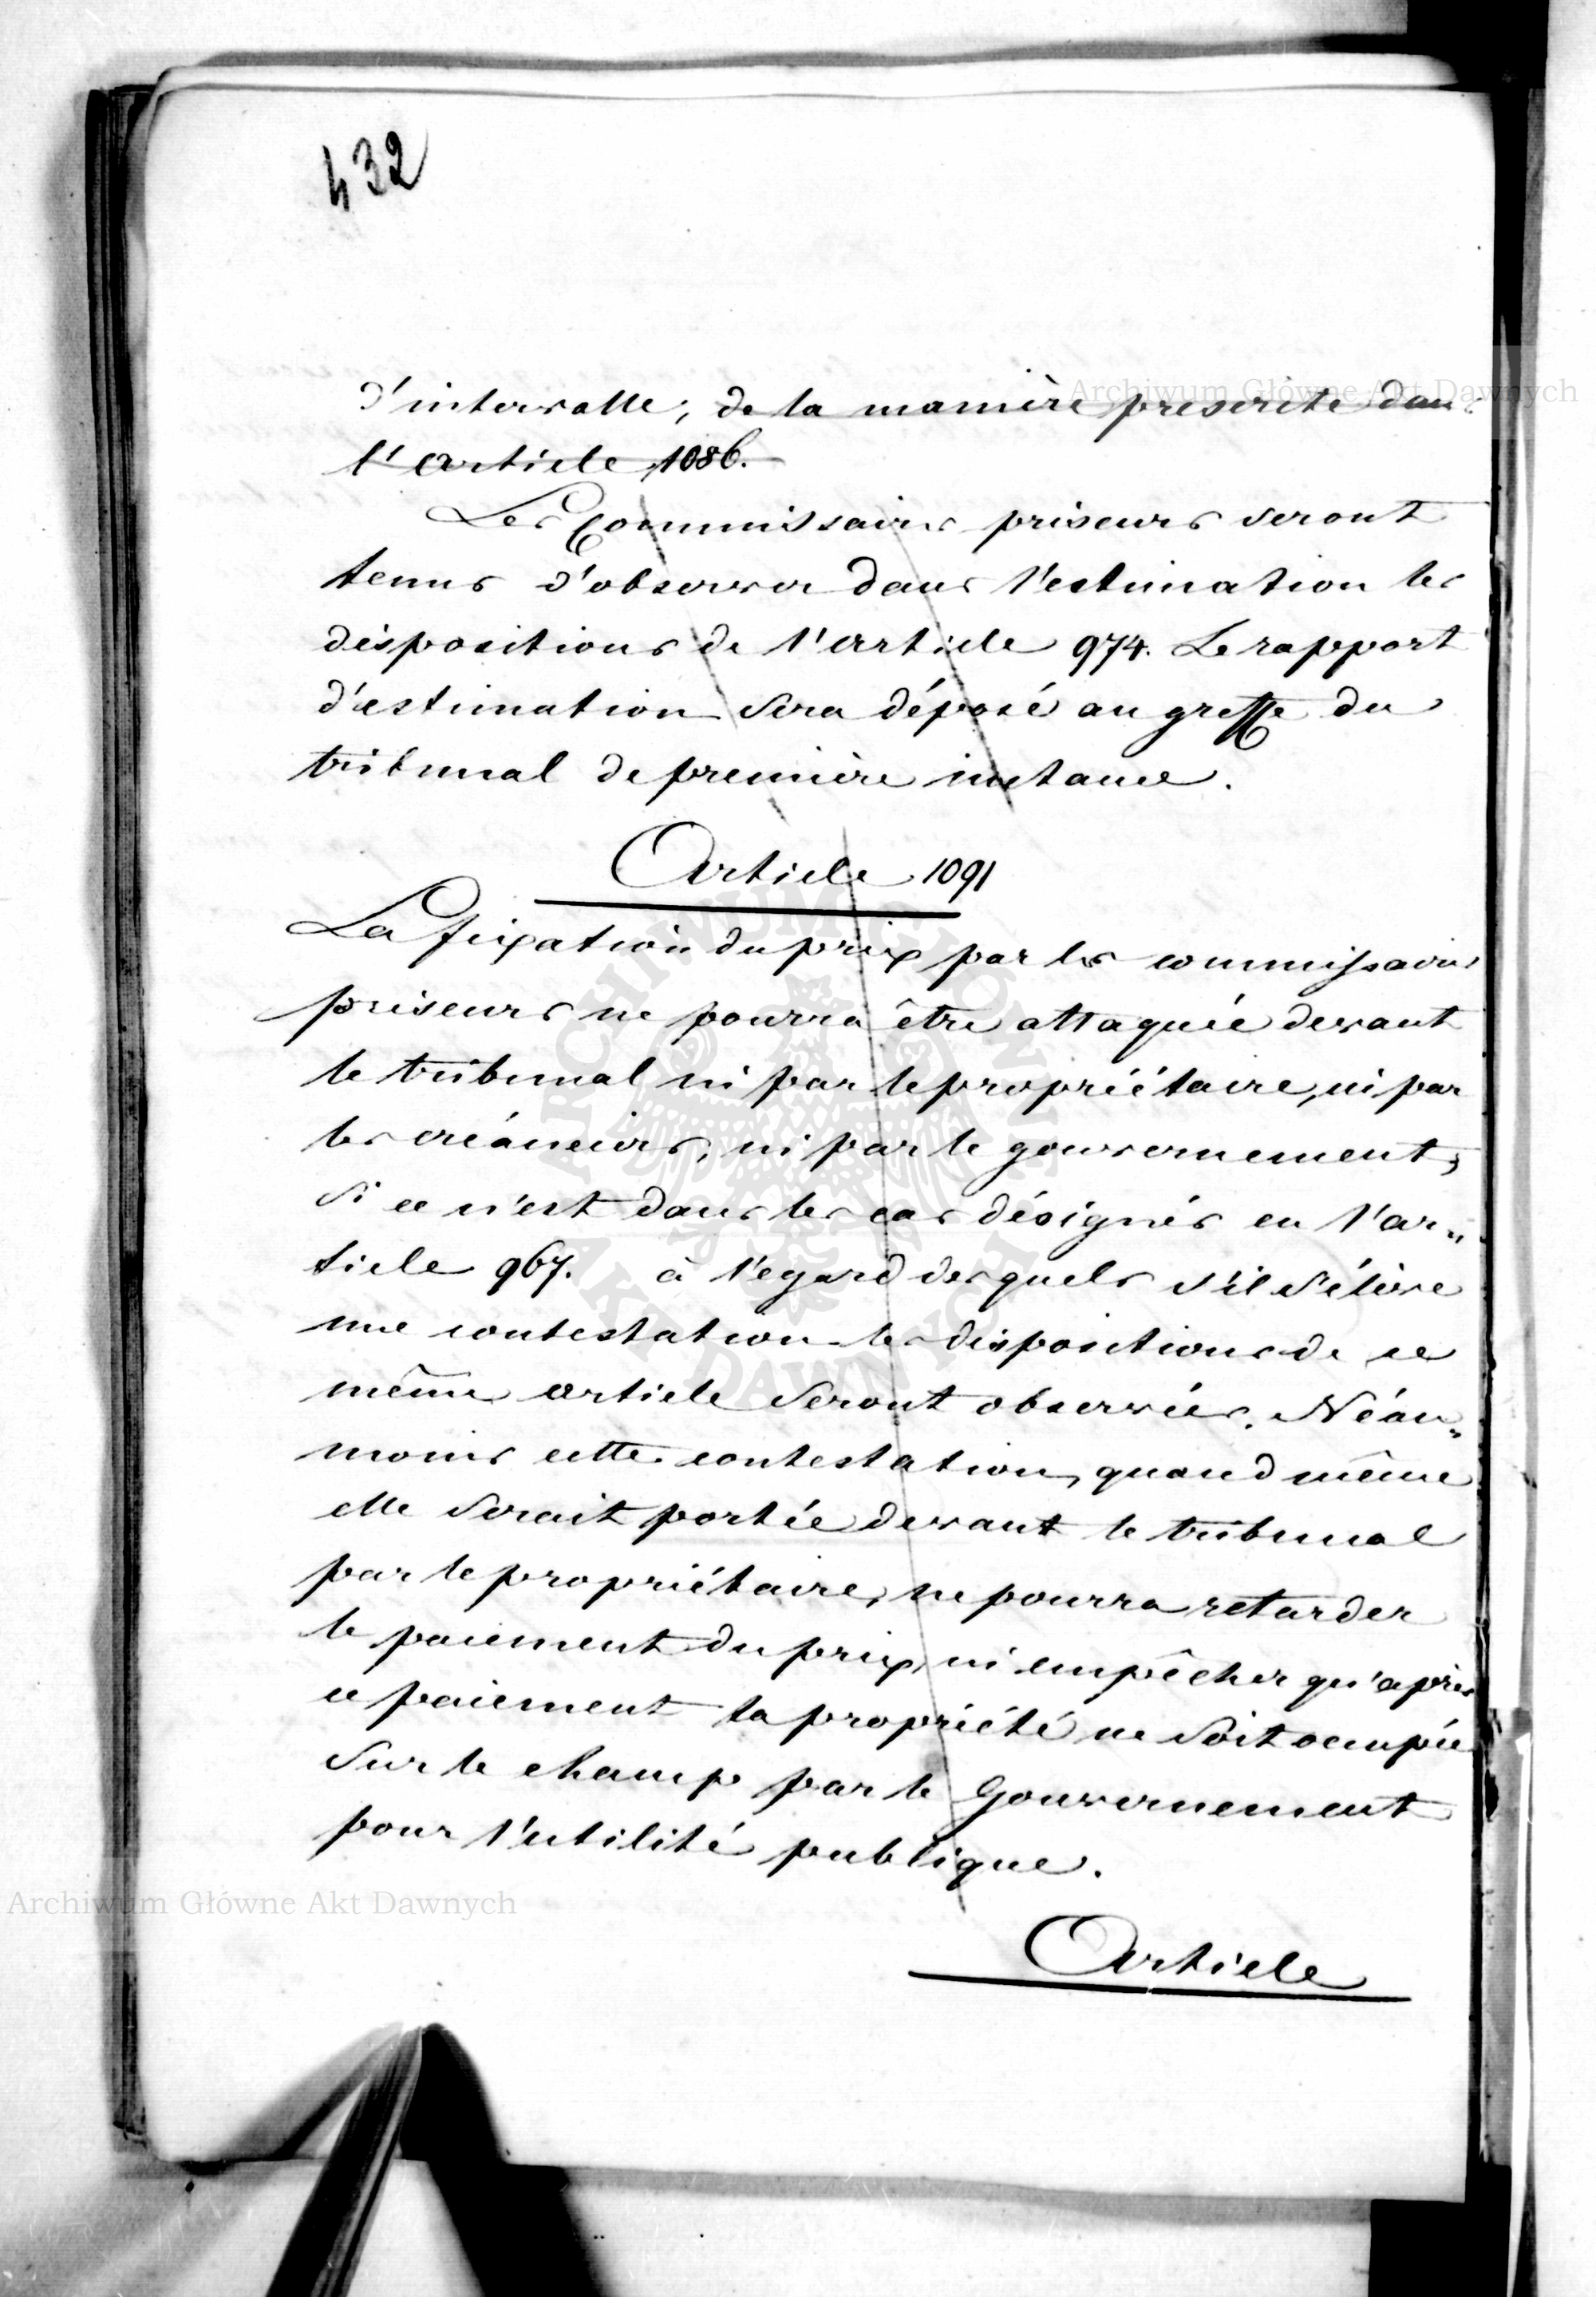 432
d'intervalle, de la manière prescrite dans
l'article 1086.
Les Commissaires priseurs seront
tenus d'observer dans l'estimation les
dispositions de l'article 974. Le rapport
d'estimation sera déposé au greffe du
tribunal de première instance.
Article 1091
La fixation du prix par les commissaires
priseurs ne pourra être attaquée devant
le tribunal ni par le propriétaire, ni par
les créanciers, ni par le gouvernement,
si ce n'est dans les cas désignés en l'ar„
ticle 967. à l'egard desquels s'il s'élève
une contestation les dispositions de ce
même article seront observées. Néan„
moins cette contestation, quand même
elle serait portée devant le tribunal
par le propriétaire, ne pourra retarder
le paiement du prix, ni empêcher qu'après
ce paiement la propriété ne soit occupée
sur le champ par le Gouvernement
pour l'utilité publique.
Article
Archiwum Główne Akt Dawnych
Archiwum Główne Akt Dawnych
ARCHIWUM GŁÓWNE AKT DAWNYCH